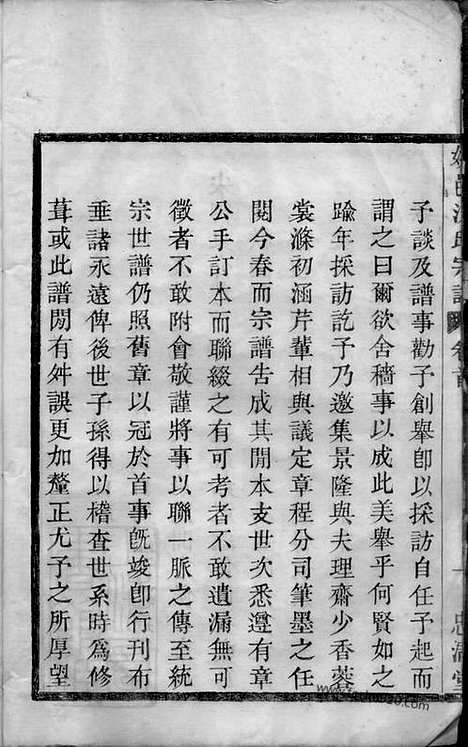 子談及譜事勸子創舉卽以採訪自任子起而
謂之曰爾欲舍穡事以成此美舉乎何賢如之
踰年採訪訖予乃邀集景隆與夫理齋少香蓉
裳滌初涵芹輩相與議定章程分司筆墨之任
閱今春而宗譜告成其閒本支世次悉遵有章
公手訂本而聯綴之有可考者不敢遺漏無可
徵者不敢附會敬謹將事以聯一脈之傳至統
宗世譜仍照舊章以冠於首事旣竣卽行刊布
垂諸永遠俾後世子孫得以稽查世系時爲修
葺或此譜閒有舛誤更加釐正尤子之所厚望